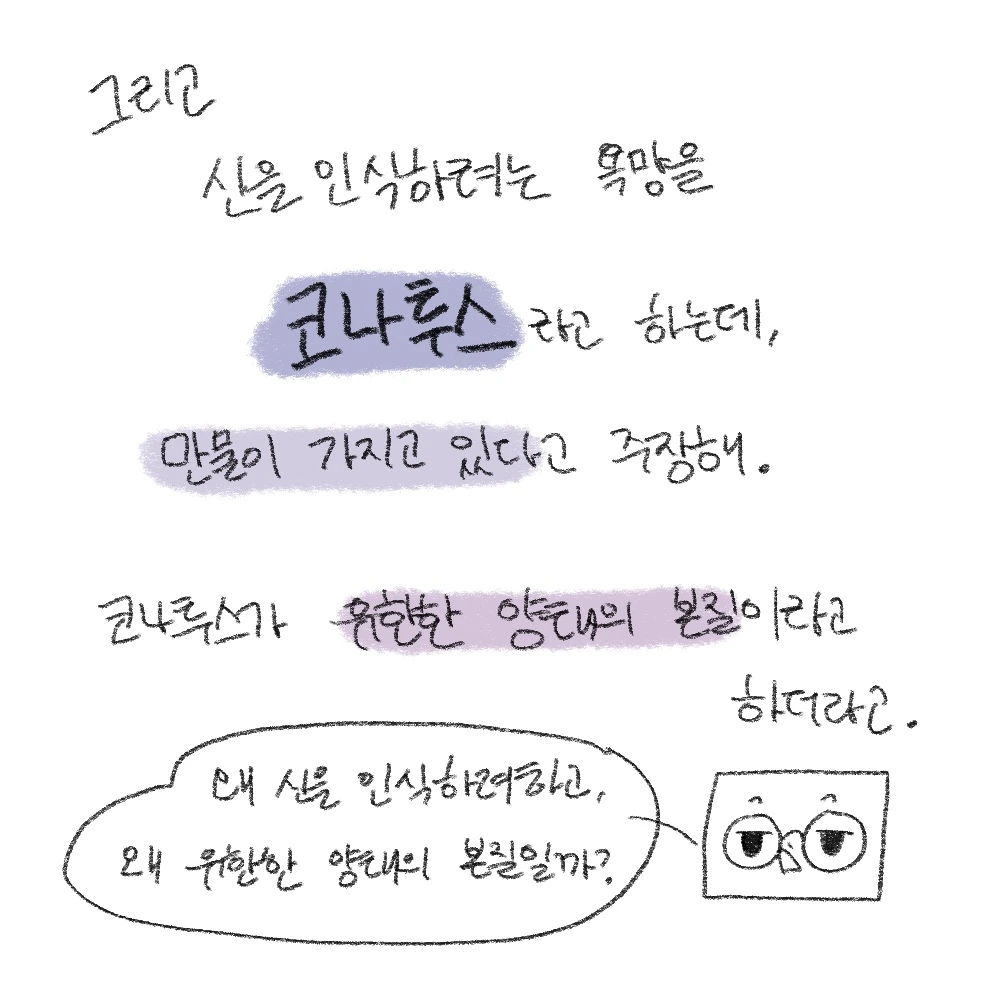 그리고
신을 인식하려는 욕망을
코나투스라고 하는데,
만물이 가지고 있다고 주장해.
코나투스가 유한한 양태의 본질이라고
하더라고.
왜 신을 인식하려하고,
왜 유한한 양태의 본질일까?